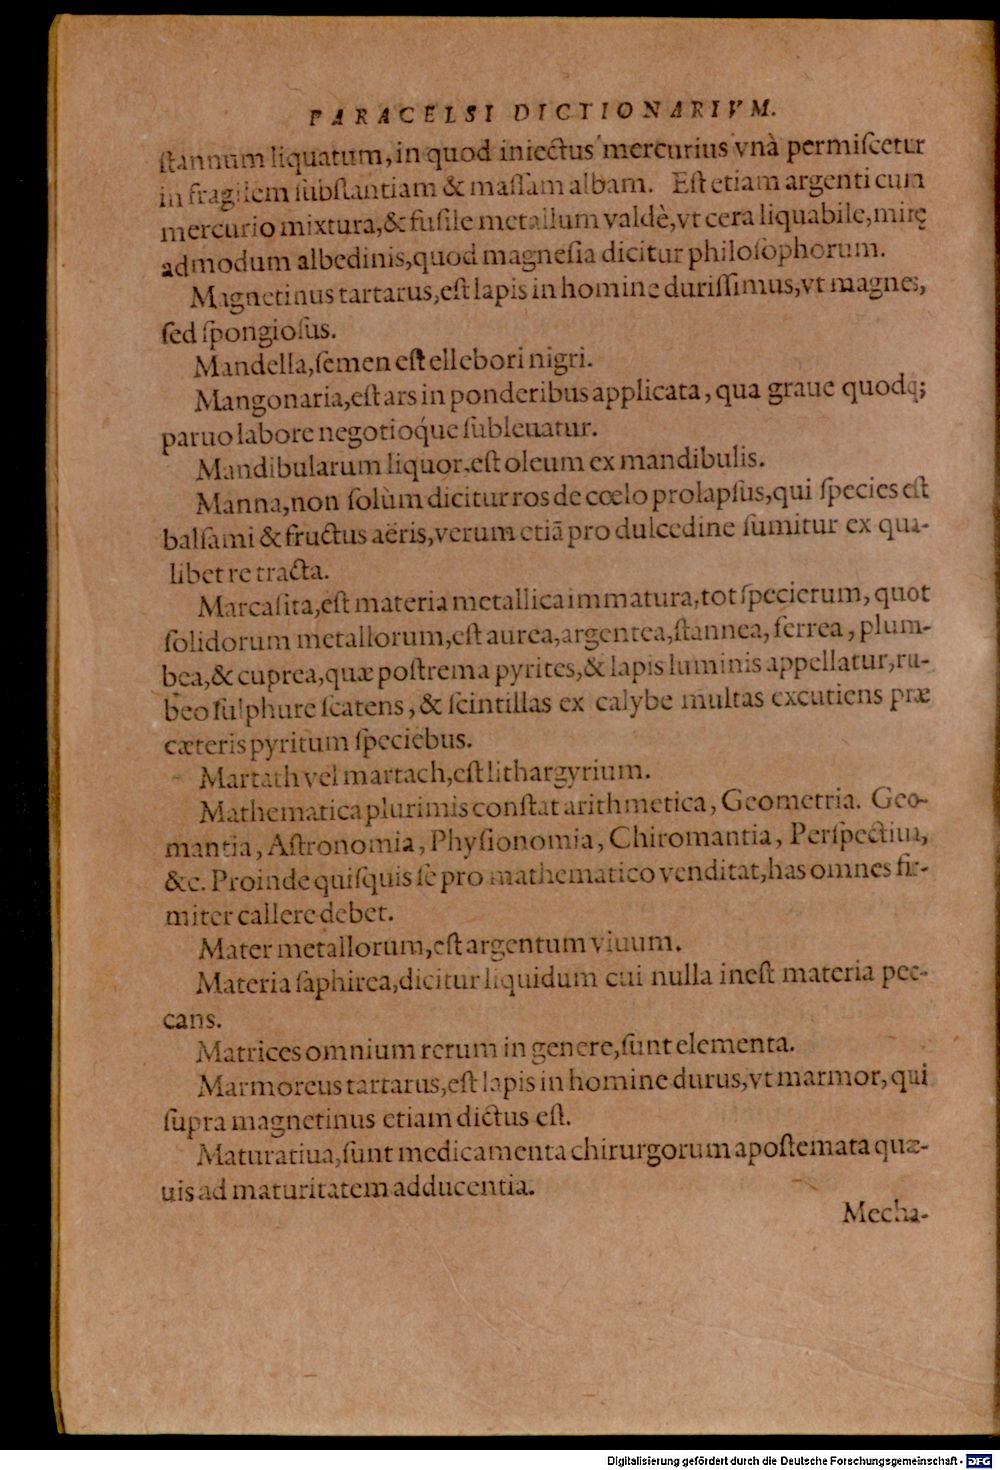 PARACELSI DICTIONARIVM.
ſtannum liquatum, in quod iniectus mercurius vnà permiſcetur
in fragilem ſubſtantiam & maſſam albam. Eſt etiam argenti cum
mercurio mixtura, & fuſile metallum valdè, vt cera liquabile, mirę
admodum albedinis, quod magneſia dicitur philoſophorum.
Magnetinus tartarus, eſt lapis in homine duriſſimus, vt magnes,
ſed ſpongioſus.
Mandella, ſemen eſt ellebori nigri.
Mangonaria, eſt ars in ponderibus applicata, qua graue quodq;
paruo labore negotioq́ue ſubleuatur.
Mandibularum liquor, eſt oleum ex mandibulis.
Manna, non ſolùm dicitur ros de cœlo prolapſus, qui ſpecies eſt
balſami & fructus aëris, verum etiã pro dulcedine ſumitur ex qua-
libet re tracta.
Marcaſita, eſt materia metallica immatura, tot ſpecierum, quot
ſolidorum metallorum, eſt aurea, argentea, ſtannea, ferrea, plum-
bea, & cuprea, quæ poſtrema pyrites, & lapis luminis appellatur, ru-
beo ſulphure ſcatens, & ſcintillas ex calybe multas excutiens præ
cæteris pyritum ſpeciebus.
Martath vel martach, eſt lithargyrium.
Mathematica plurimis conſtat arithmetica, Geometria. Geo-
mantia, Aſtronomia, Phyſionomia, Chiromantia, Perſpectiua,
&c. Proinde quiſquis ſe pro mathematico venditat, has omnes fir-
miter callere debet.
Mater metallorum, eſt argentum viuum.
Materia ſaphirea, dicitur liquidum cui nulla ineſt materia pec-
cans.
Matrices omnium rerum in genere, ſunt elementa.
Marmoreus tartarus, eſt lapis in homine durus, vt marmor, qui
ſupra magnetinus etiam dictus eſt.
Maturatiua, ſunt medicamenta chirurgorum apoſtemata quæ-
uis ad maturitatem adducentia.
Mecha-
Digitalisierung gefördert durch die Deutsche Forschungsgemeinschaft - DFG